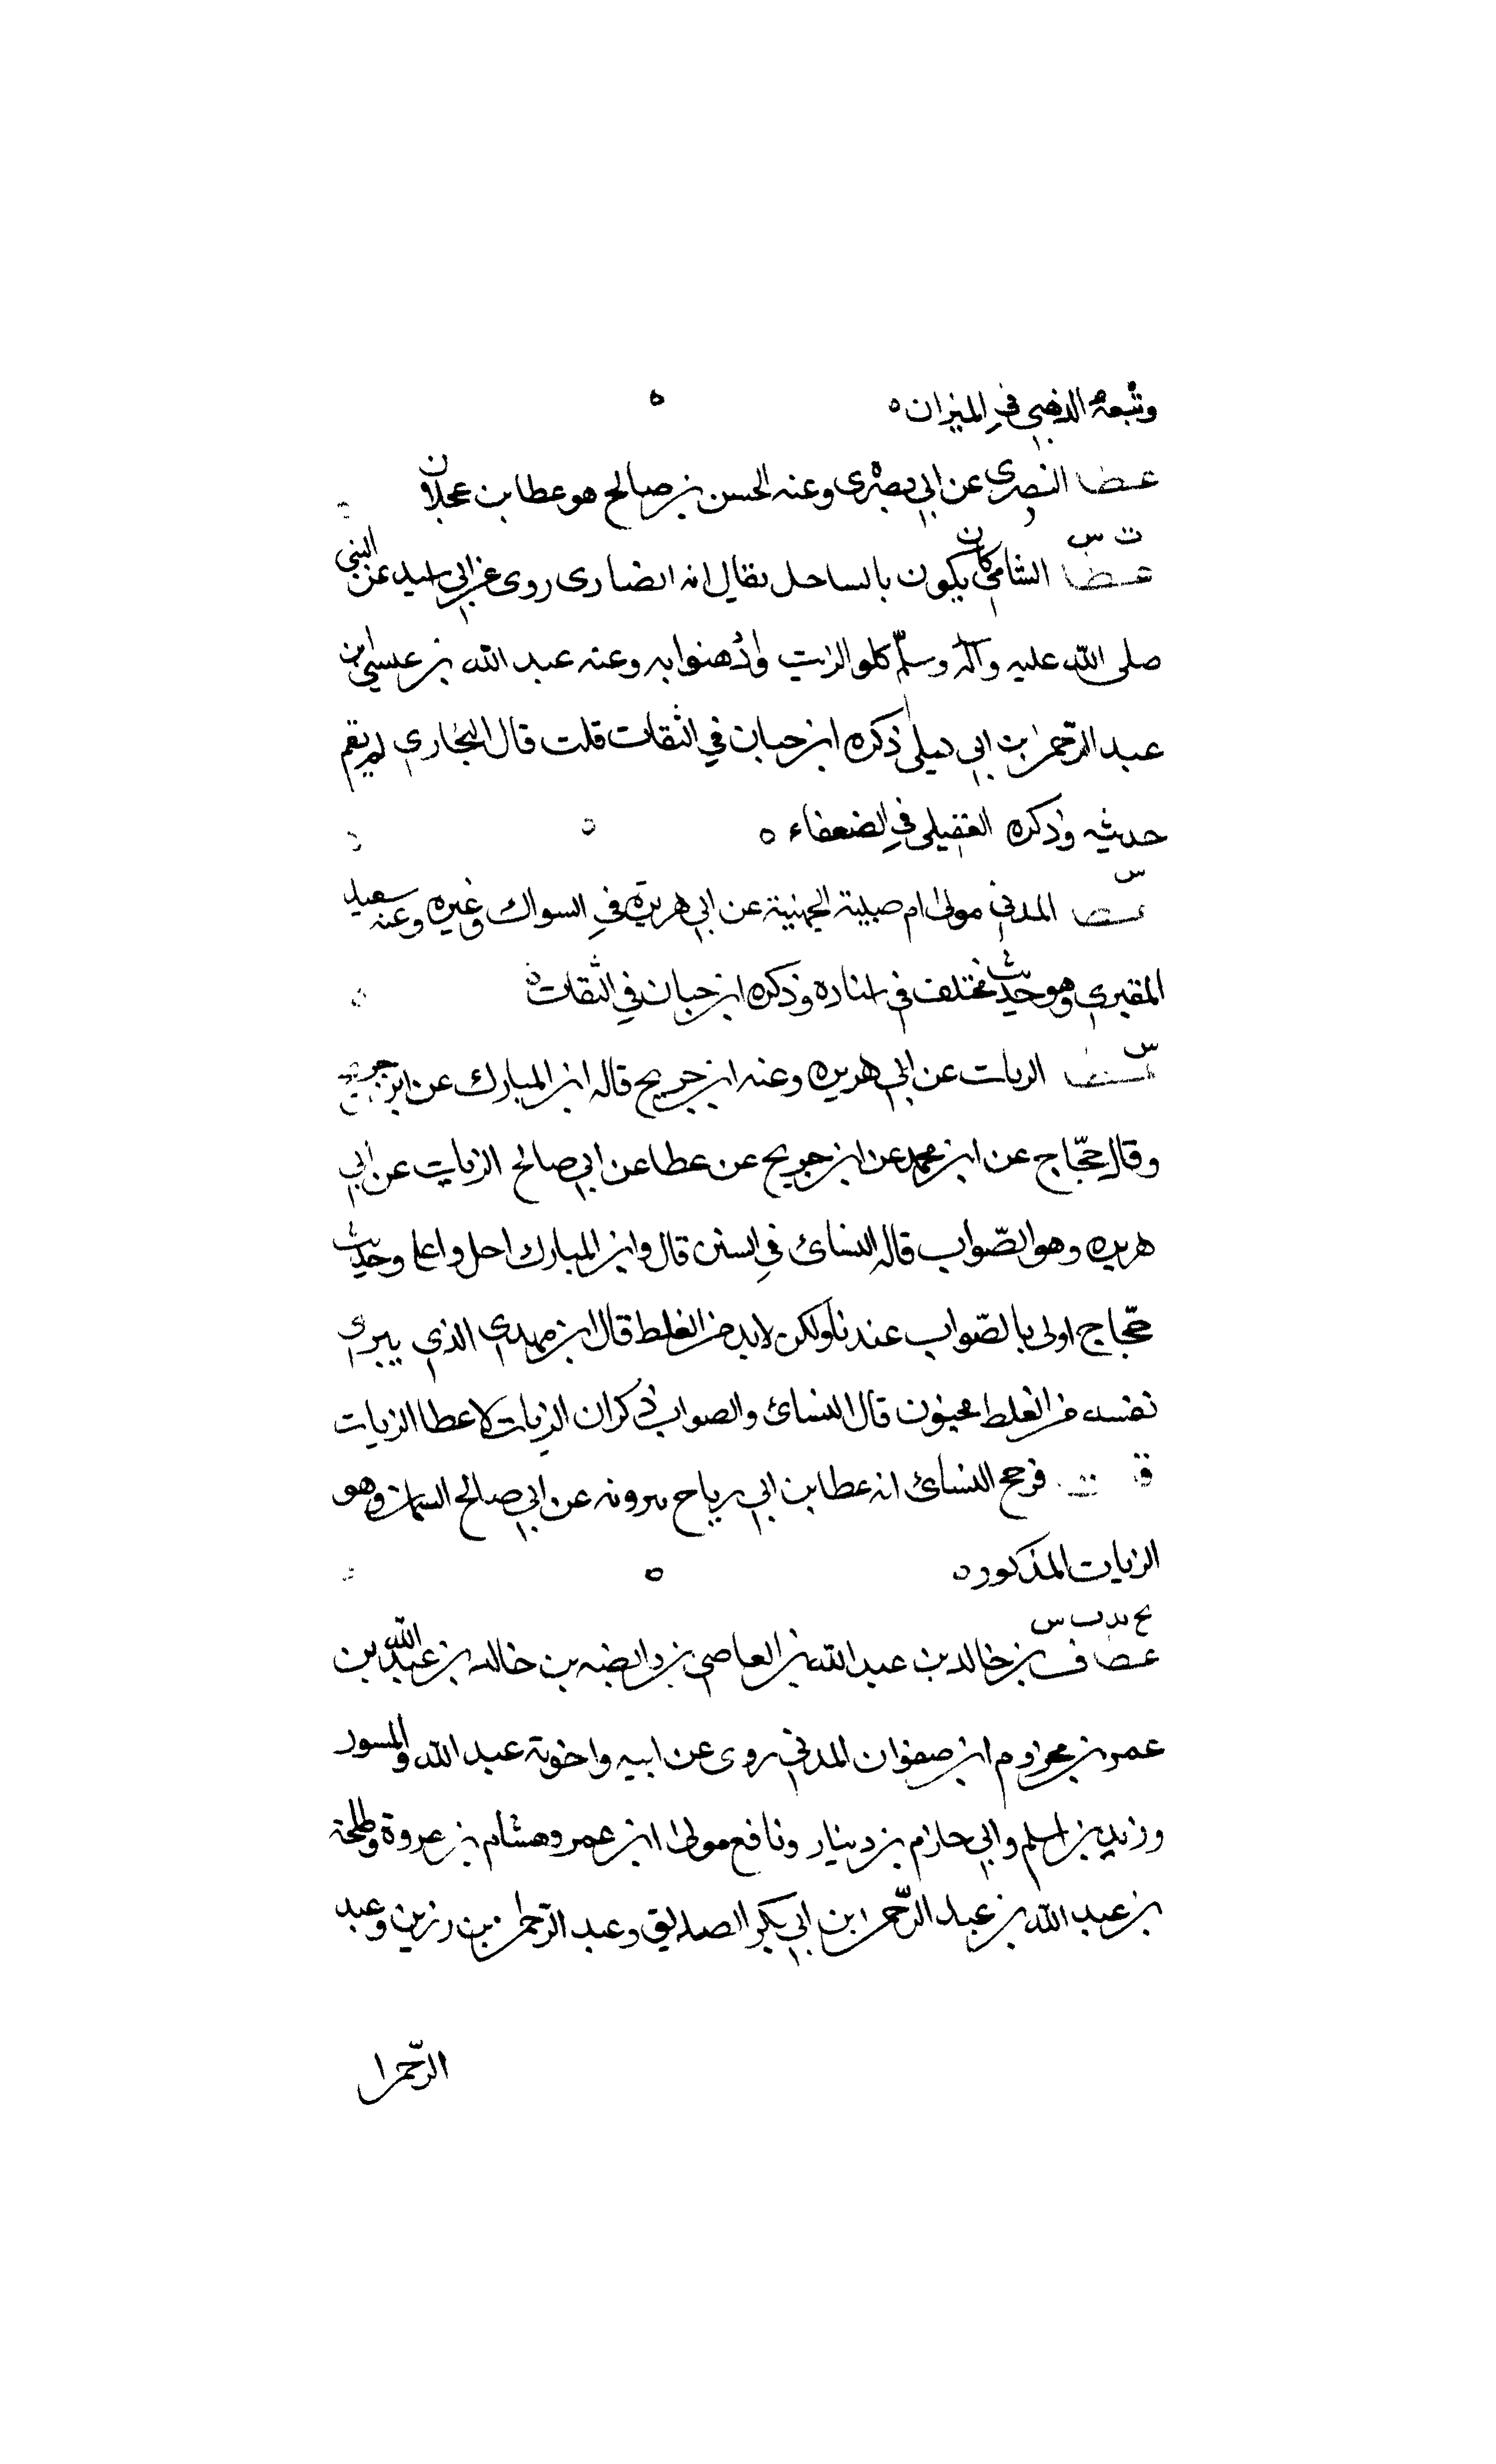 وتبعه الذهبي في الميزان ه
عطا البصرى عن ابي نصرة وعنه الحسن بن صالح هو عطا بن عجلان
ت س
عطا الشامي كان يكون بالساحل يقال انه انصارى روى عن ابي اسيد عن النبي
صلى الله عليه وآله وسلّم كلوا الزيت وادّهنوا به وعنه عبد الله بن عيسى بن
عبد الرّحمن بن ابي ليلى ذكره ابن حبان في الثقات قلت قال البخاري لم يقم
حديثه وذكره العقيلي في الضعفاء ه
س
عطا المدني مولى ام صبية الجهنية عن ابي هريرة في السواك وغيره وعنه سعيد
المقبري وهو حديث مختلف في اسناده وذكره ابن حبان في الثقات ه
س
عطا الزيات عن ابي هريره وعنه ابن جريج قاله ابن المبارك عن ابن جريج
وقال حجّاج عن ابن محمد عن ابن جريج عن عطا عن ابي صالح الزيات عن ابي
هريره وهو الصّواب قاله النسائ في السنن قال وابن المبارك اجل واعلا وحديث
حجّاج اولى بالصّواب عندنا ولكن لابد من الغلط قال ابن مهدي الذي يبرى
نفسه من الغلط مجنون قال النسائ والصواب ذكوان الزيات لا عطا الزيات
ق فرجح النسائ انه عطا بن ابي رباح يرويه عن ابي صالح السمان وهو
الزيات المذكور ه
بخ مد ت س
عطاف بن خالد بن عبد الله بن العاصي بن وابصه بن خالد بن عبد الله بن
عمر بن مخزوم ابن صفوان المدني روى عن ابيه واخوته عبد الله والمسور
وزيد بن اسلم وابي حازم بن دينار ونافع مولى ابن عمر وهشام بن عروة وطلحة
بن عبد الله بن عبد الرّحمن ابن ابي بكر الصديق وعبد الرّحمن بن رزين وعبد
الرّحمن